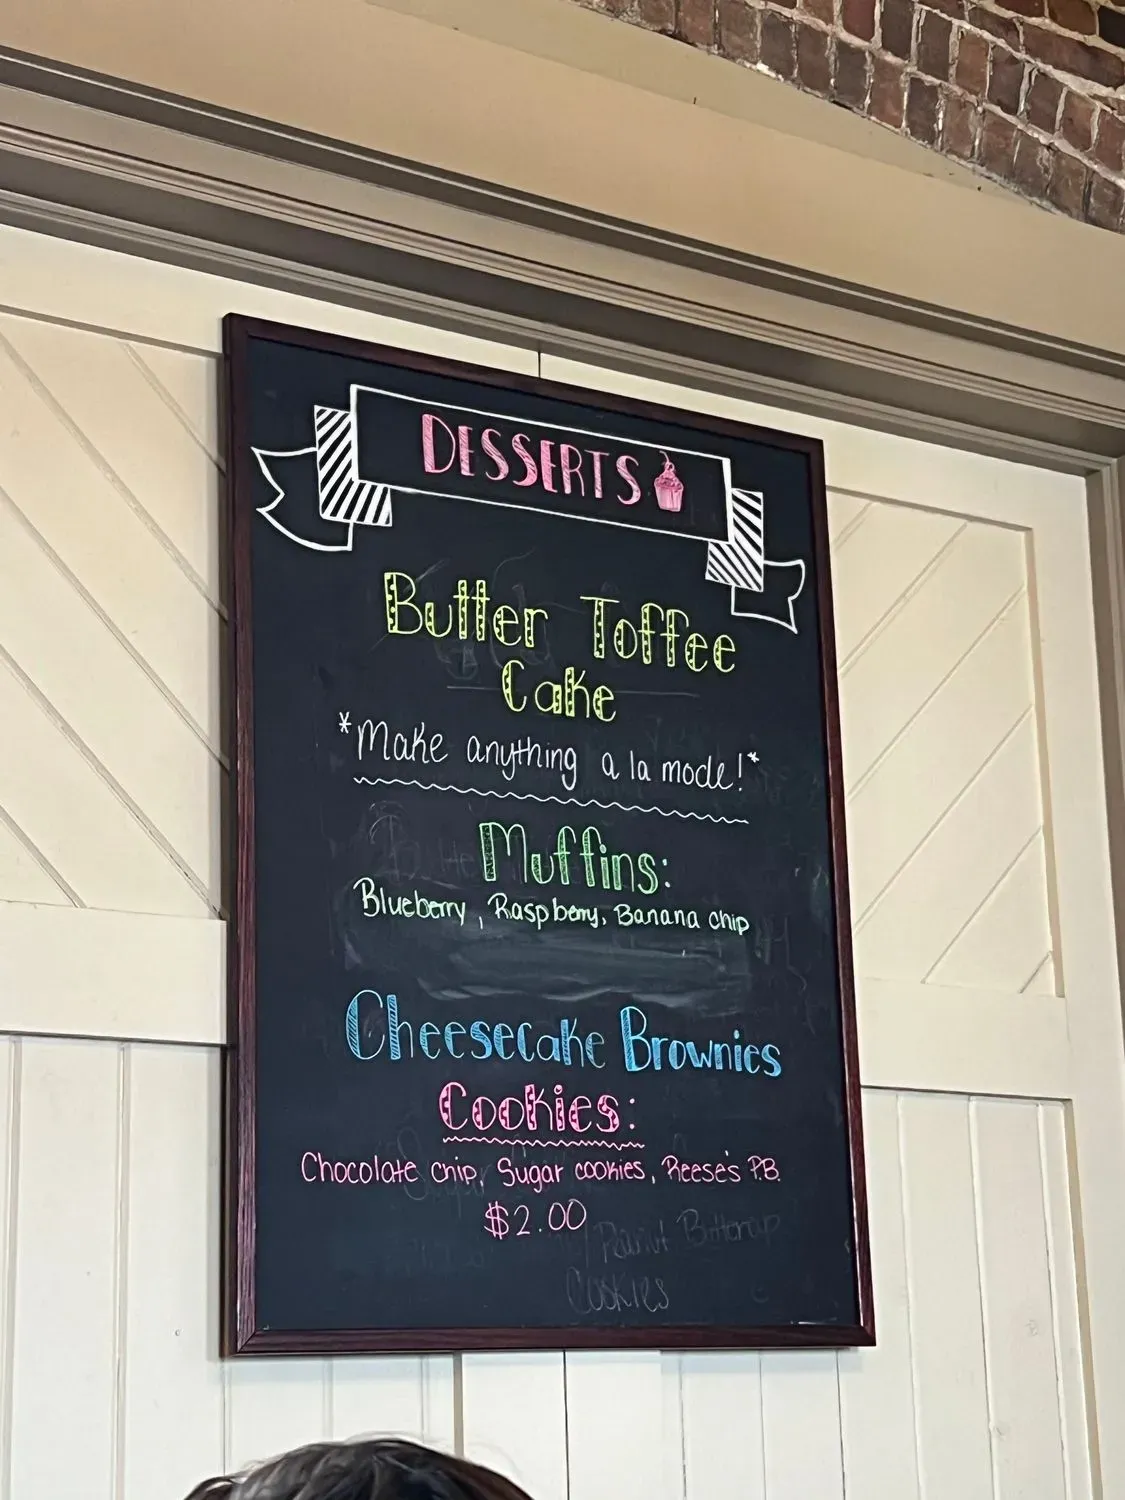 DESSERTS
Butter Toffee
Cake
*Make anything a la mode!*
Muffins:
Blueberry, Raspberry, Banana chip
Cheesecake Brownies
Cookies:
Chocolate chip, Sugar cookies, Reese's P.B.
$2.00
Peanut Buttercup
Cookies